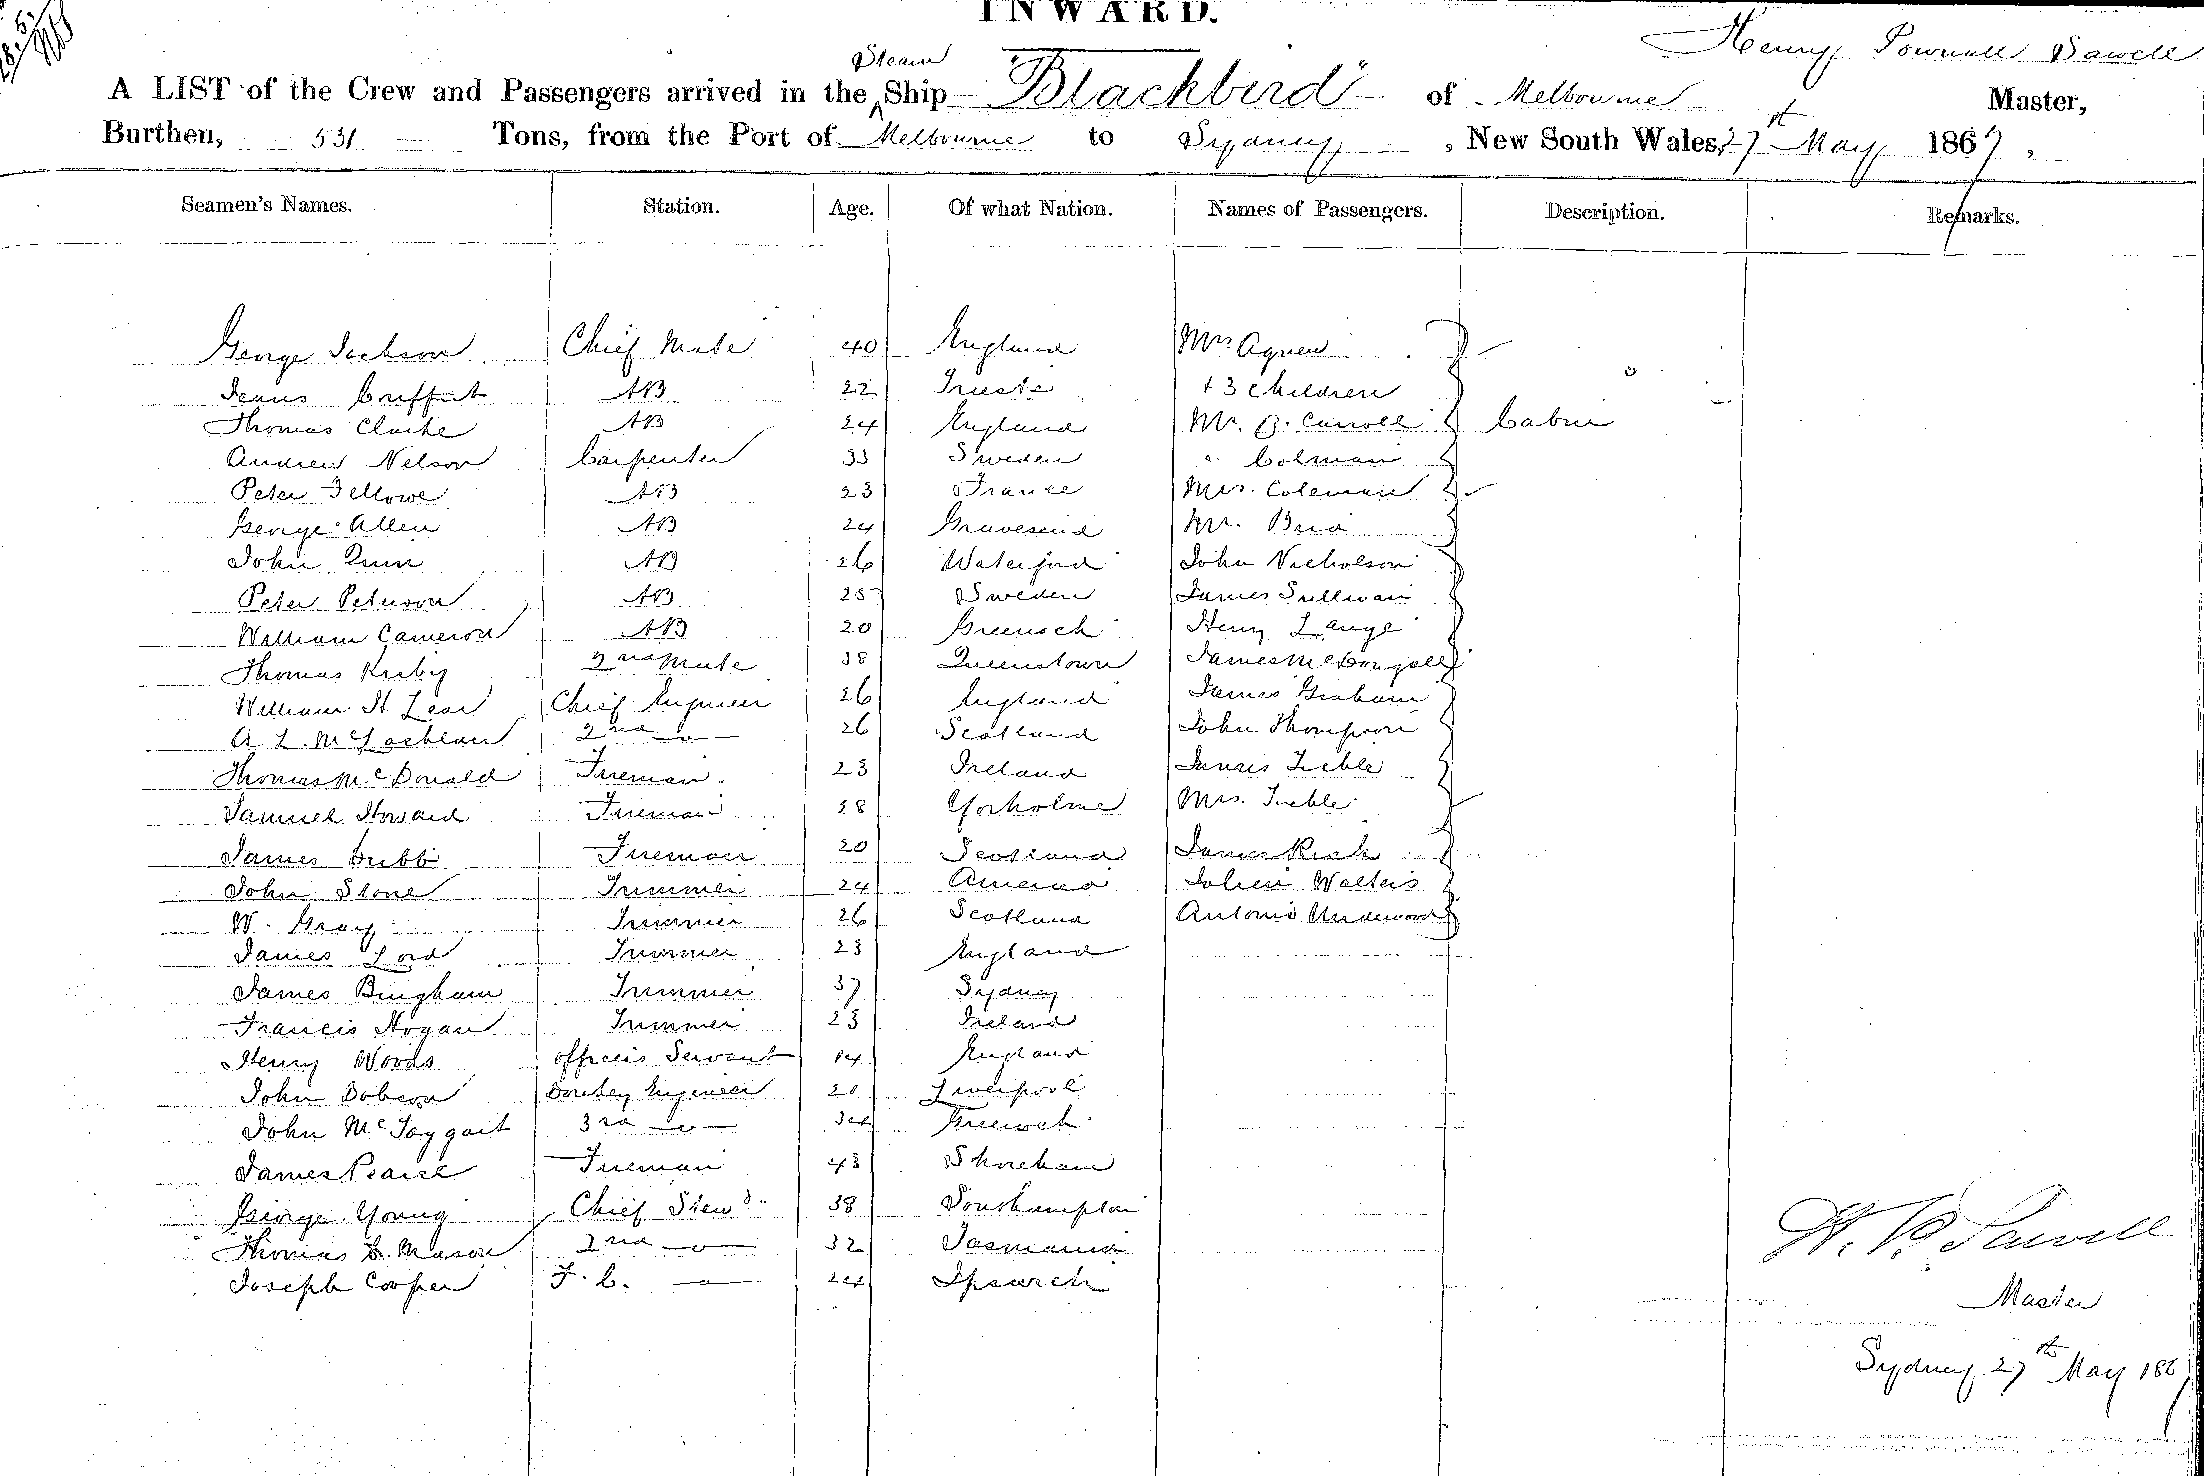 INWARD.
Henry Pownall Sawell
Steam
A LIST of the Crew and Passengers arrived in the Ship "Blackbird" of Melbourne Master,
Burthen, 531 Tons, from the Port of Melbourne to Sydney, New South Wales, 27th May 1867.
Seamen's Names. Station. Age. Of what Nation. Names of Passengers. Description. Remarks.
George Jackson Chief Mate 40 England Mrs Agnew
AB 22 Trieste + 3 Children
Thomas Clarke AB 24 England Mr. B. Carroll Cabin
Andrew Nelson Carpenter 33 Sweden " Colman
Peter Fellowe AB 23 France Mrs. Coleman
George Allen AB 24 Gravesend Mr.
John Quin AB 26 Waterford John Nicholson
Peter Peterson AB 25 Sweden James Sullivan
William Cameron AB 20 Greenock Henry Lange
Thomas Kirby 2nd Mate 38 Queenstown James McDougall
William H Lear Chief Engineer 26 England James Graham
A L. McLachlan 2nd " 26 Scotland John Thompson
Thomas McDonald Fireman 23 Ireland James Treble
Samuel Howard Fireman 28 Mrs. Treble
James Fireman 20 Scotland James
John Stone Trimmer 24 America John Walters
W. Gray Trimmer 26 Scotland Antonio Underwood
James Lord Trimmer 23 England
James Bingham Trimmer 37 Sydney
Francis Hogan Trimmer 23 Ireland
Henry Woods officers Servant 14 England
John Dobson Donkey Engineer 20 Liverpool
John McTaggait 3rd " 34 Greenock
James Pearce Fireman 43 Shoreham
George Young Chief Stewd 38 Southampton
Thomas E. Mason 2nd " 32 Tasmania
Joseph Cooper F. C. " 24 Ipswich
H. P. Sawell
Master
Sydney 27th May 1867